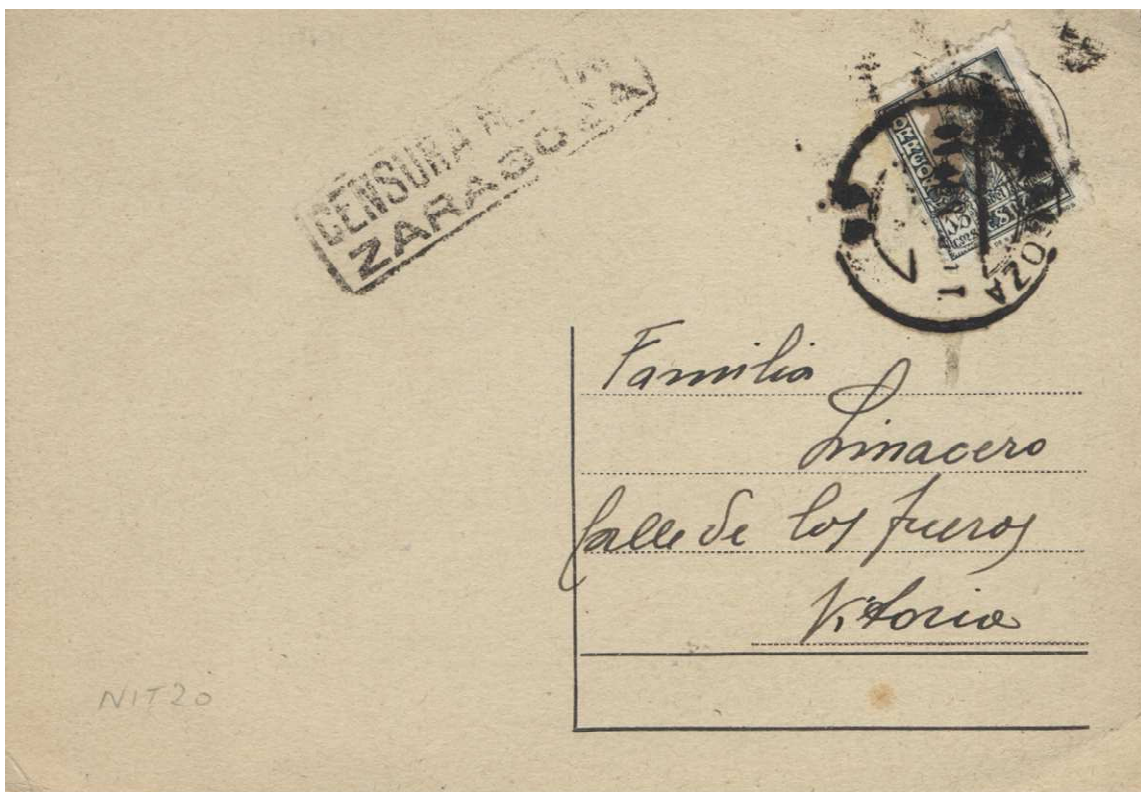 CENSURA
ZARAGOZA
15
Familia
Linacero
Calle de los fueros
Vitoria
NIT20